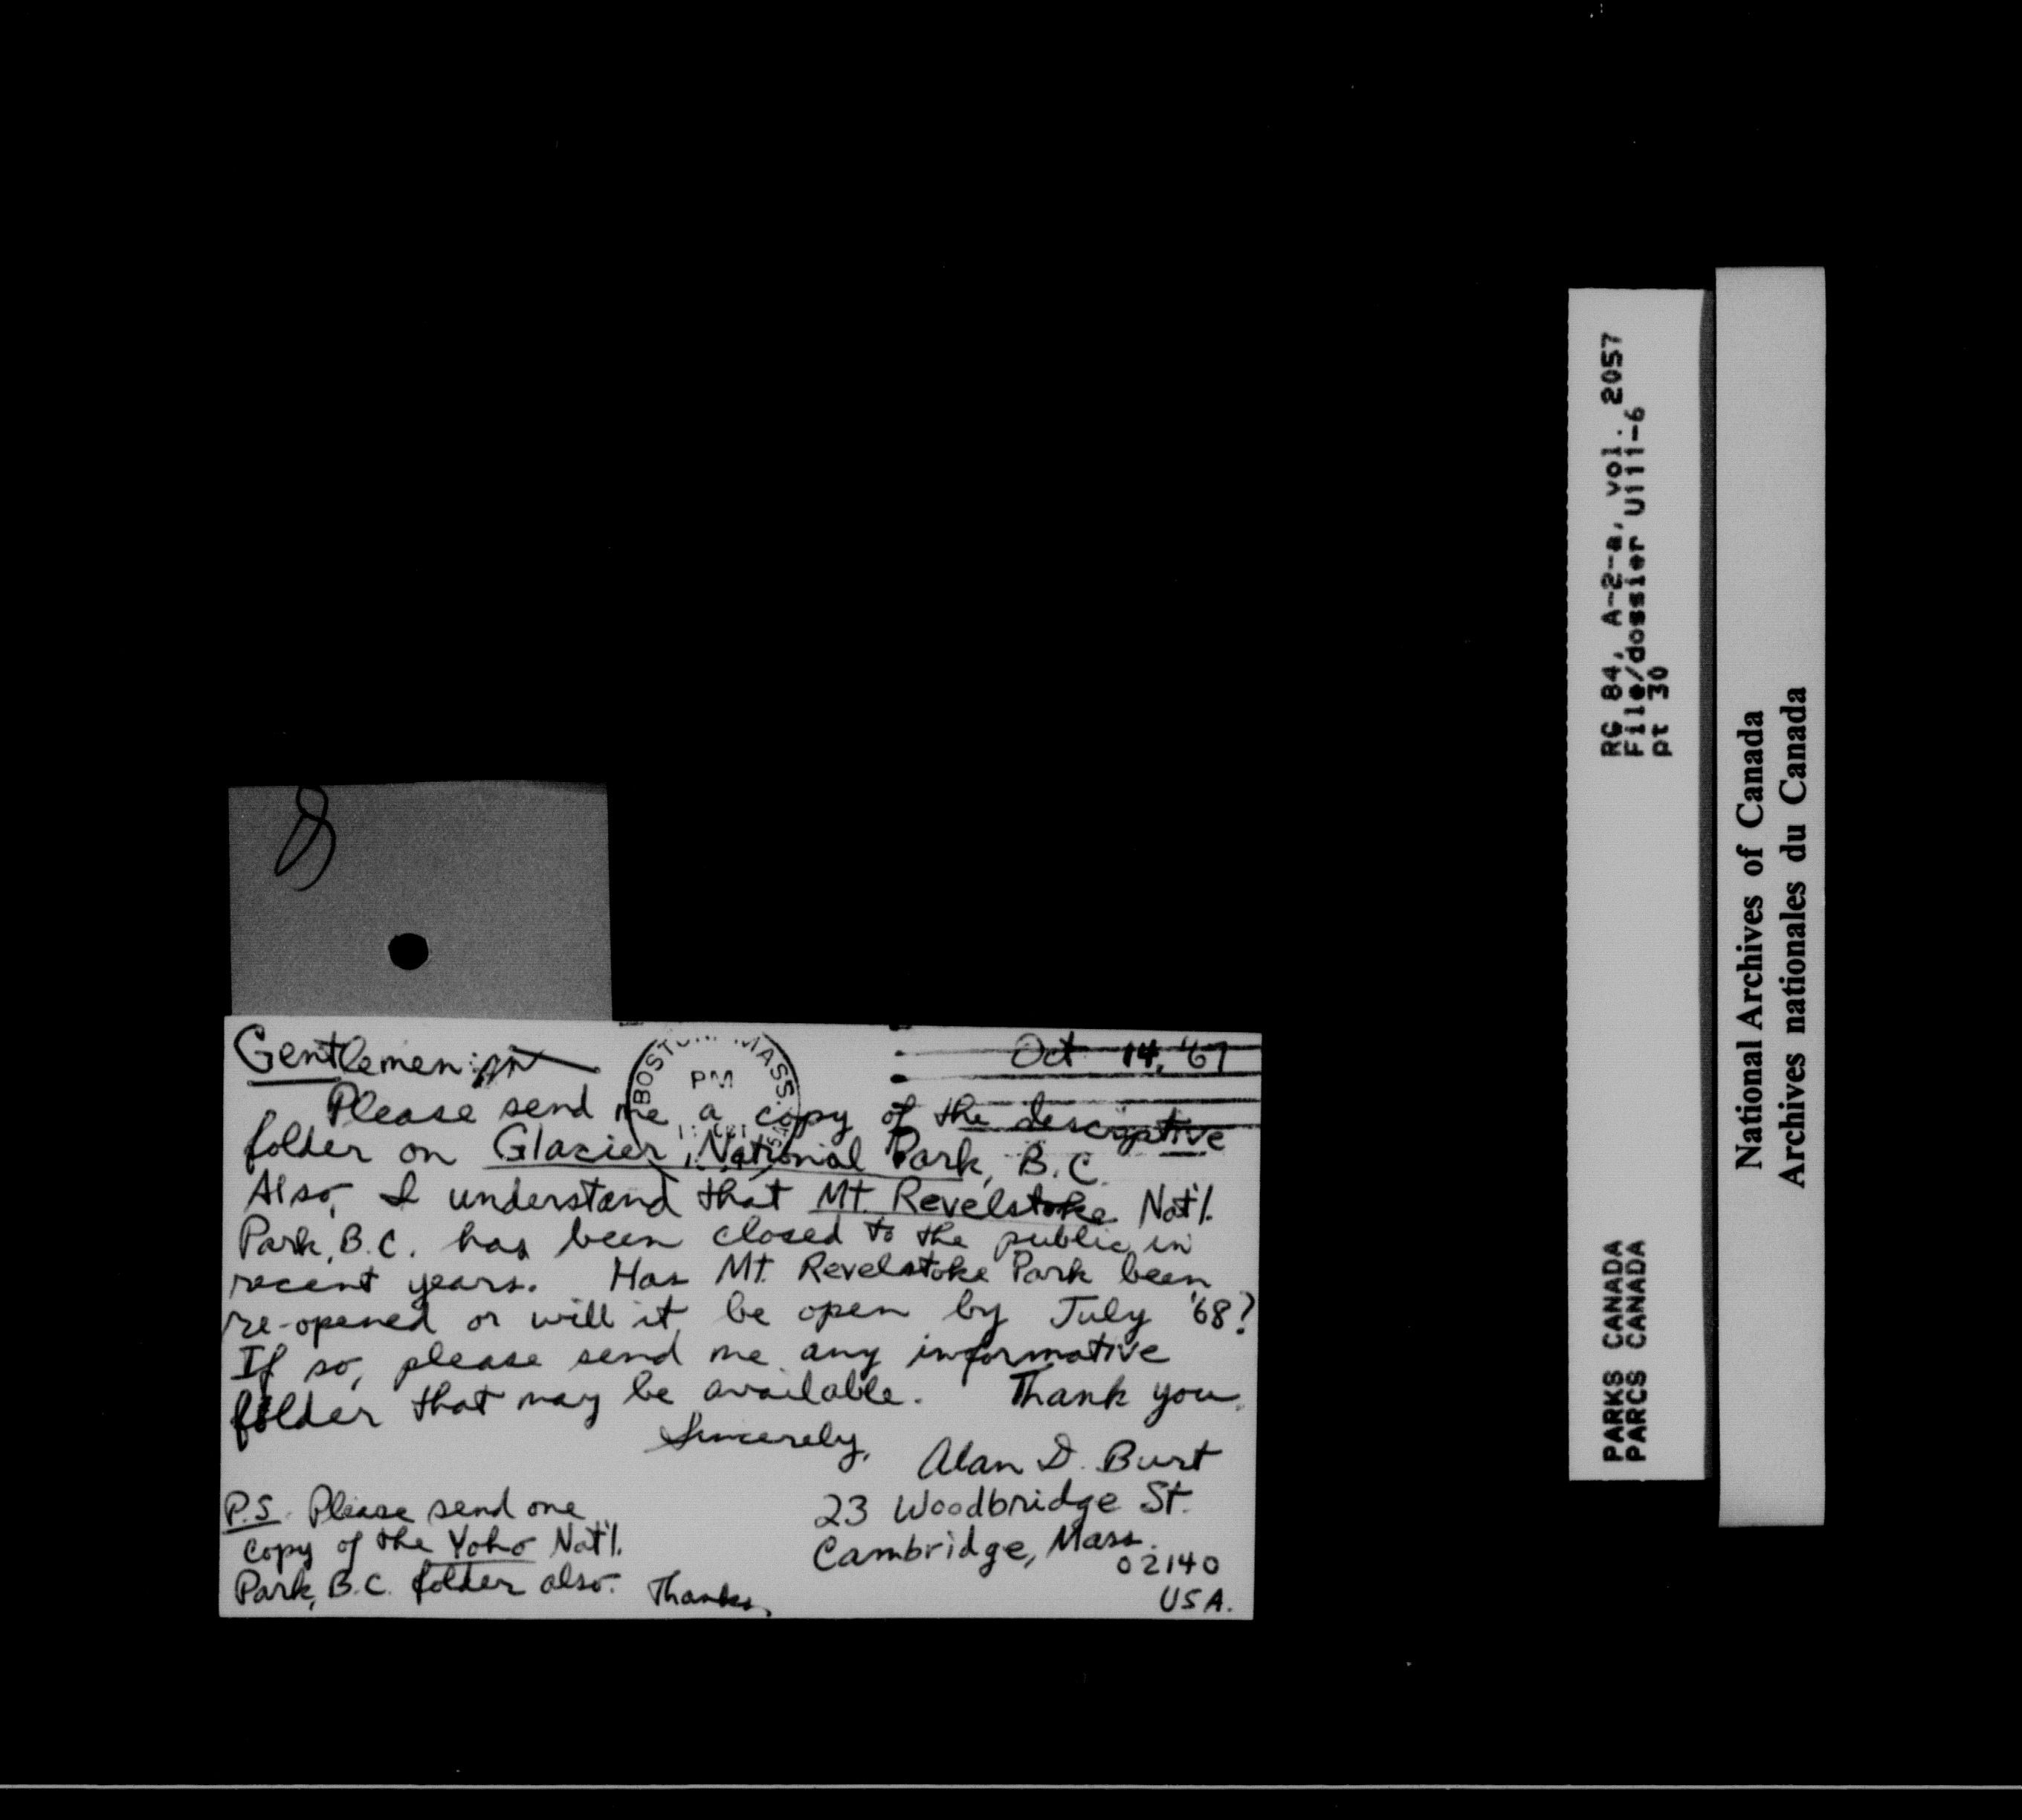 8
Gentlemen:
Oct 14, '67
BOSTON, MASS.
PM
Please send me a copy of the descriptive
folder on Glacier National Park, B.C.
Also, I understand that Mt. Revelstoke Nat'l.
Park, B.C. has been closed to the public in
recent years. Has Mt. Revelstoke Park been
re-opened or will it be open by July '68?
If so, please send me any informative
folder that may be available. Thank you.
Sincerely,
Alan D. Burt
23 Woodbridge St.
Cambridge, Mass.
02140
USA.
P.S. Please send one
copy of the Yoho Nat'l.
Park, B.C. folder also.
Thanks.
RG 84, A-2-a, vol. 2057
File/dossier U111-6
pt 30
PARKS CANADA
PARCS CANADA
National Archives of Canada
Archives nationales du Canada